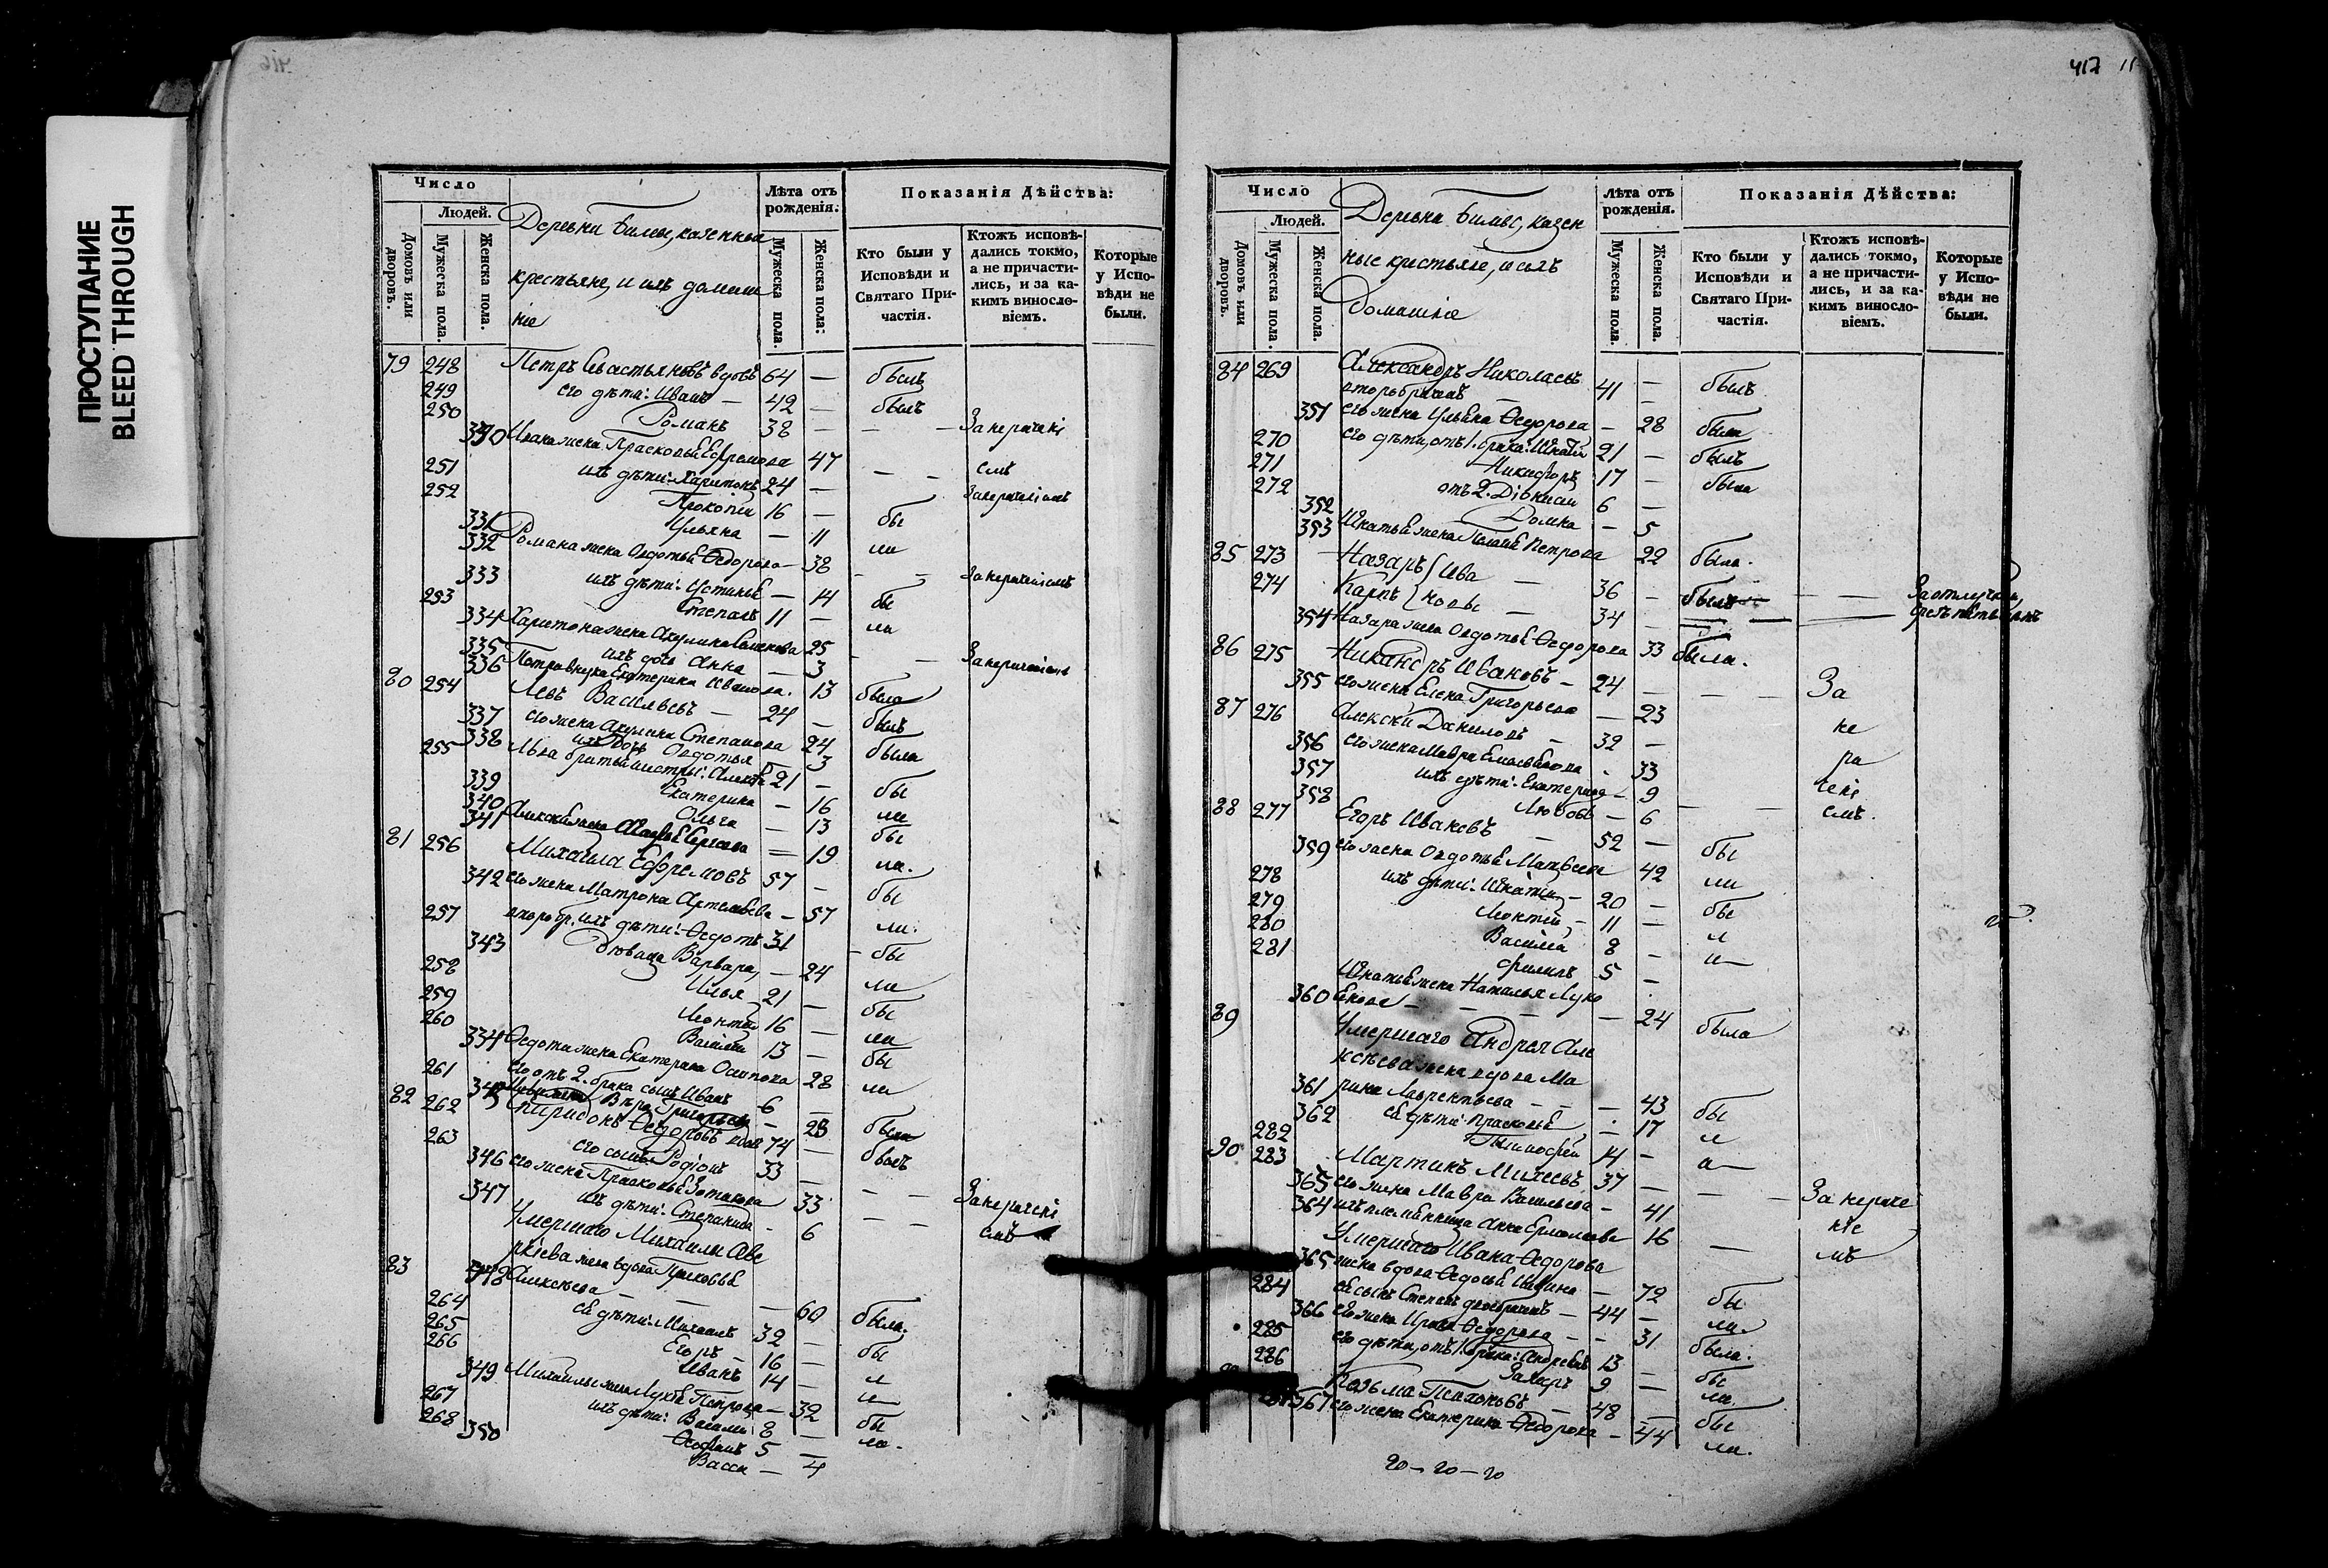 ПРОСТУПАНИЕ
BLEED THROUGH
417
Число
Людей.
Домовъ или дворовъ.
Мужеска пола.
Женска пола.
Деревни казенные
крестьяне, и ихъ домаш
ніе
Лѣта отъ рожденія:
Мужеска пола.
Женска пола:
Показанія Дѣйства:
Кто были у Исповѣди и Святаго При-частія.
Ктожъ исповѣ-дались токмо, а не причасти-лись, и за ка-кимъ винословіемъ.
Которые у Испо-вѣди не были.
79 248 Петръ Севастьяновъ вдовъ 64 — былъ
249 его дѣти: Иванъ — 42 — былъ
250 Романъ 38 — — — За нераченi
330 Ивана жена Прасковья Ефремова 47
251 ихъ дѣти: Харитонъ 24 — — — емъ
252 Прокопiй 16 — бы За нераченiемъ
331 Ульяна — 11 ли
332 Романа жена Овдотья Ѳедорова — 38 — — За нераченiемъ
333 ихъ дѣти: Устинья — 14 бы
253 Степанъ 11 — ли
334 Харитона жена Акулина 25 — — За нераченiемъ
335 ихъ дочь Анна — 3
336 Петра внука Екатерина Иванова. 13 была
80 254 Левъ Васильевъ — 24 — былъ
337 его жена Акулина Степанова 24 была
338 ихъ дочь Овдотья — 3
255 Льва братья и сестры: 21 — бы
339 Екатерина — 16 ли
340 Ольга — 13 бы
341 Сергеева — 19 ли.
81 256 Михаила Ефремовъ 57 — бы
342 его жена Матрона Артемьева — 57 ли.
257 второбр. ихъ дѣти: Ѳедотъ 31 — бы
343 Варвара, — 24 ли
258 Илья 21 — бы
259 Леонтiй 16 — ли
260 Василiй 13 — бы
334 Ѳедота жена Екатерина Осипова 28 ли
261 его отъ 2. брака сынъ Иванъ 6 —
345 Вѣра Григорьева — 23 была
82 262 Спиридонъ Ѳедоровъ вдовъ 74 — былъ
263 его сынъ Родiонъ 33 — — —
346 его жена Прасковья 33 За нераченi
347 ихъ дѣти: Степанида — 6 — — емъ
Умершаго Михаилы Аве
ркiева жена вдова Прасковья
83 348 Алексѣева — — — 60 была.
264 ея дѣти: Михаилъ 32 — бы
265 Егоръ 16 — л
266 Иванъ 14 — и
349 Михаилы жена Петрова — 32 бы
267 ихъ дѣти: Василiй 8 — ли.
268 5 —
350 Васса — 4
Число
Людей.
Домовъ или дворовъ.
Мужеска пола.
Женска пола.
Деревни казен
ные крестьяне, и ихъ
Домашнiе
Лѣта отъ рожденія.
Мужеска пола.
Женска пола.
Показанія Дѣйства:
Кто были у Исповѣди и Святаго При-частія.
Ктожъ исповѣ-дались токмо, а не причасти-лись, и за ка-кимъ винословіемъ.
Которые у Испо-вѣди не были.
84 269 Александръ Николаевъ
второбрачный — 41 — былъ
351 его жена Ульяна Ѳедорова — 28 была
270 его дѣти, отъ 1. брака: Игнатiй 21 — былъ
271 Никифоръ 17 — была
272 отъ 2. Дiонисiй 6 —
352 Домна — 5
353 Игнатья жена Петрова 22 была.
85 273 Назаръ Ива 36 — былъ
274 Карпъ новы — 34 — За отлучкою
354 Назара жена Овдотья Ѳедорова 33 была.
86 275 Никаноръ Ивановъ — 24 — — — За
355 его жена Елена Григорьева — 23
87 276 Алексѣй Даниловъ — 32 — не
356 его жена Мавра Емельянова — 33 ра
357 ихъ дѣти: Екатерина — 9 ченi
358 Любовь — 6 — — емъ.
88 277 Егоръ Ивановъ — 52 — бы
359 его жена Овдотья Матвеева 42 ли
278 ихъ дѣти: Игнатiй — 20 — бы
279 Леонтiй, — 11 — л
280 Василiй 8 — и
281 Филипъ 5 —
Игнатья жена Наталья Луко
360 янова — — — 24 была
89 Умершаго Андрея Але
ксѣева жена вдова Ма
361 рина Лаврентьева — — — 43 бы
362 ея дѣти: Прасковья — 17 л
282 Тимофей 14 — а
90 283 Мартинъ Михеевъ 37 — — — За нераче
365 его жена Мавра Васильева — 41 нiе
364 ихъ племянница Анна Ермолаева 16 — мъ
Умершаго Ивана Ѳедорова
365 жена вдова Ѳедосья — 72 бы
284 ея сынъ Степанъ двобрачный — 44 — ли.
366 его жена Ѳедорова — — 31 была.
285 его дѣти, отъ 1. брака: Андрей 13 — бы
286 Захаръ 9 — ли.
Козьма — 48 — бы
367 его жена Екатерина Ѳедорова — 44 ли.
20 — 20 — 20